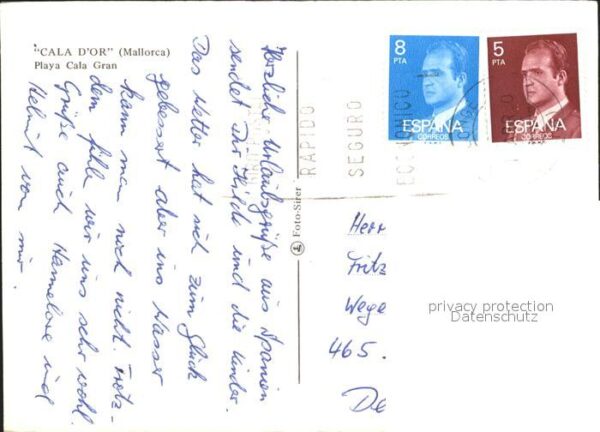 "CALA D'OR" (Mallorca)
Playa Cala Gran
Herzliche Urlaubsgrüße aus Spanien
sendet Dir Hilde und die Kinder.
Das Wetter hat sich zum Glück
gebessert aber ins Wasser
kann man noch nicht. Trotz-
dem fühlen wir uns sehr wohl.
Grüße auch Hannelore und
Helmut von mir.
Foto-Sirer
8
PTA
ESPAÑA
CORREOS
5
PTA
ESPAÑA
CORREOS
RAPIDO
SEGURO
ECONOMICO
Herr
Fritz
Wege
465.
De
privacy protection
Datenschutz